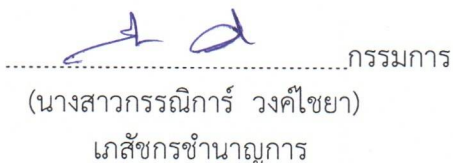 ........................................กรรมการ
(นางสาวกรรณิการ์ วงค์ไชยา)
เภสัชกรชำนาญการ